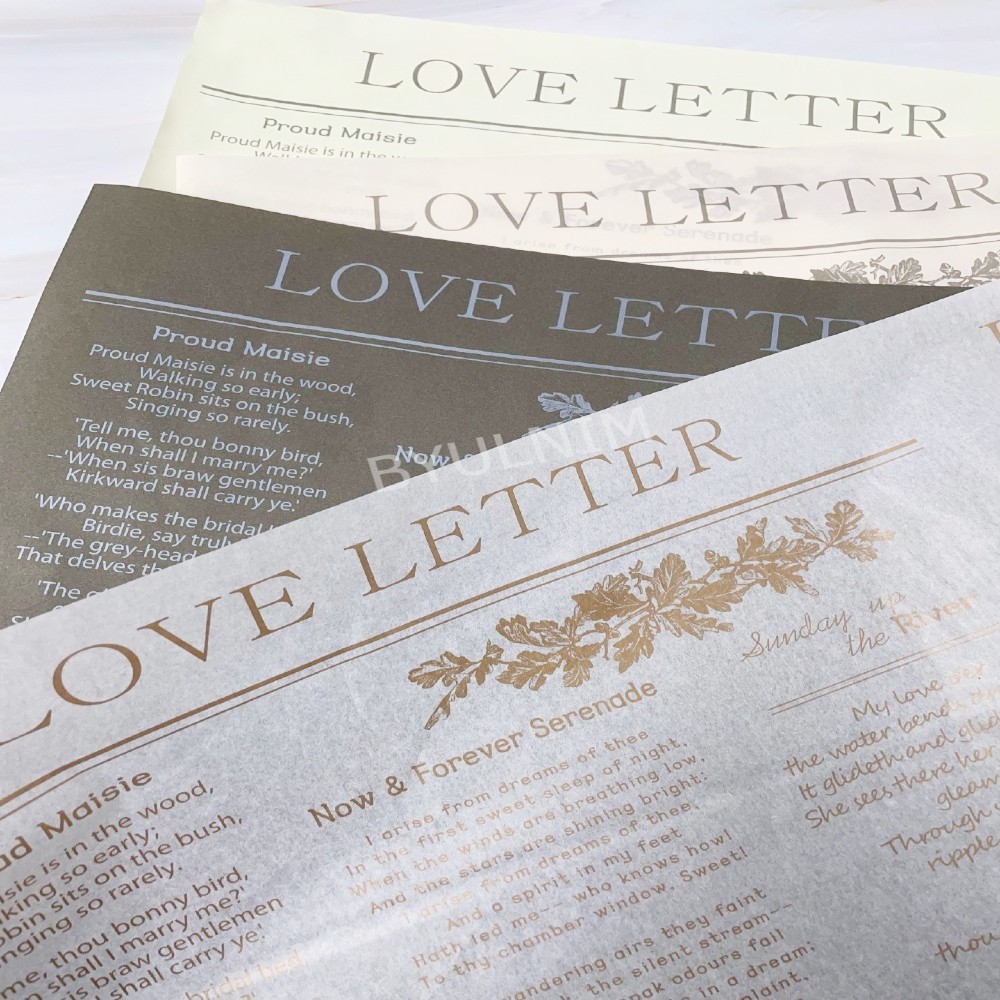 LOVE LETTER
Proud Maisie
Proud Maisie is in the
LOVE LETTER
Forever Serenade
I arise from
LOVE LETTER
Proud Maisie
Proud Maisie is in the wood,
Walking so early;
Sweet Robin sits on the bush,
Singing so rarely.
'Tell me, thou bonny bird,
When shall I marry me?'
--'When sis braw gentlemen
Kirkward shall carry ye.'
'Who makes the bridal
Birdie, say truly
--'The grey-head
That delves
'The
Now
BYULNIM
LOVE LETTER
Maisie
is in the wood,
so early;
sits on the bush,
so rarely.
thou bonny bird,
shall I marry me?'
sis braw gentlemen
shall carry ye.'
bridal bed
Now & Forever Serenade
I arise from dreams of thee
In the first sweet sleep of night,
When the winds are breathing low,
And the stars are shining bright:
I arise from dreams of thee,
And a spirit in my feet
Hath red me-- who knows how!
To thy chamber window, Sweet!
wandering airs they faint
the silent stream--
odours fail
in a dream:
Sunday up
the River
My love
the water bends
It glideth and
She sees there her
Through